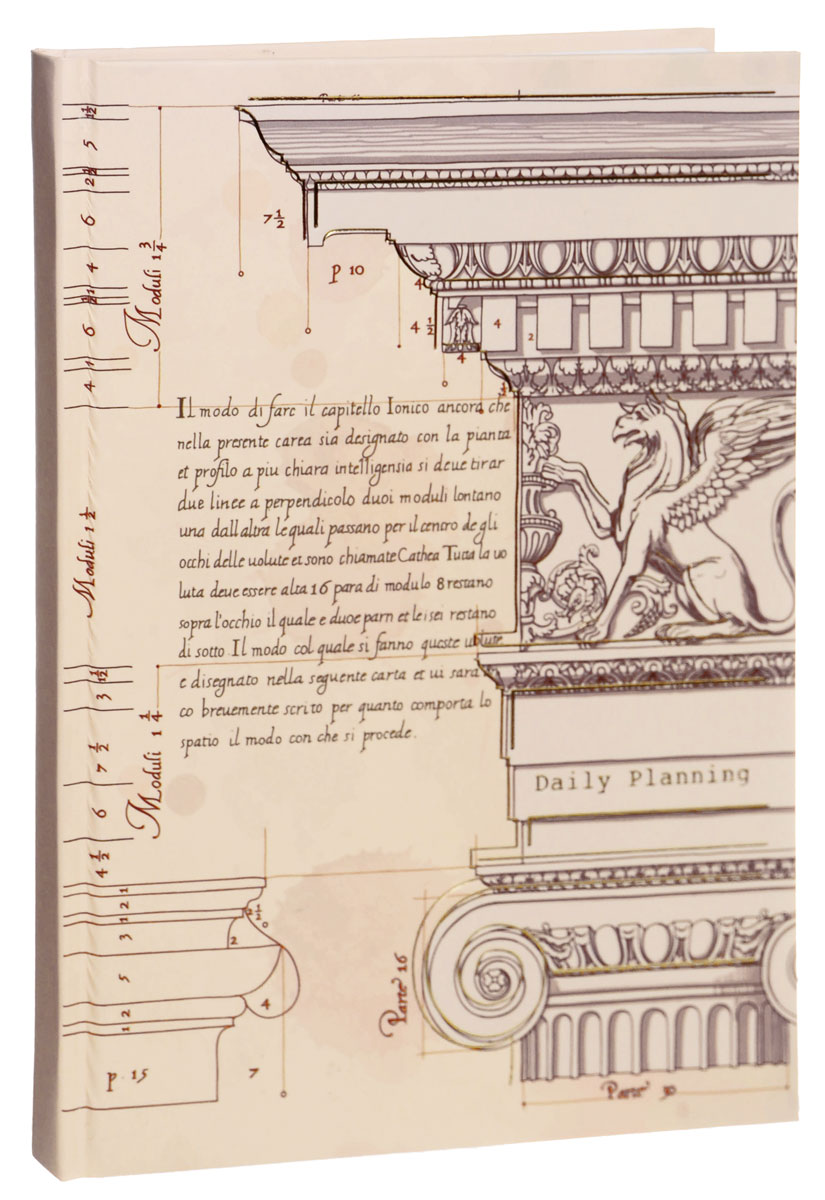 12
5
2
6
4
6
1
4
Moduli 1 3/4
7 1/2
p 10
4
4 1/2
4
4
2
3
Il modo di fare il capitello Ionico ancora che
nella presente carea sia designato con la pianta
et profilo a piu chiara intelligensia si deue tirar
due linee a perpendicolo duoi moduli lontano
una dall altra le quali passano per il centro de gli
occhi delle uolute et sono chiamate Cathea Tutta la uo
luta deue essere alta 16 para di modulo 8 restano
sopra l'occhio il quale e duoe parn et le isei restano
di sotto Il modo col quale si fanno queste uolute
e disegnato nella seguente carta et ui sara
co breuemente scrito per quanto comporta lo
spatio il modo con che si procede.
Moduli 1 1/2
12
3
7 1/2
6
4 1/2
Moduli 1 1/4
Daily Planning
1
2
3
5
2
1
2 1/2
2
4
p. 15
7
Parte 16
Parte 30